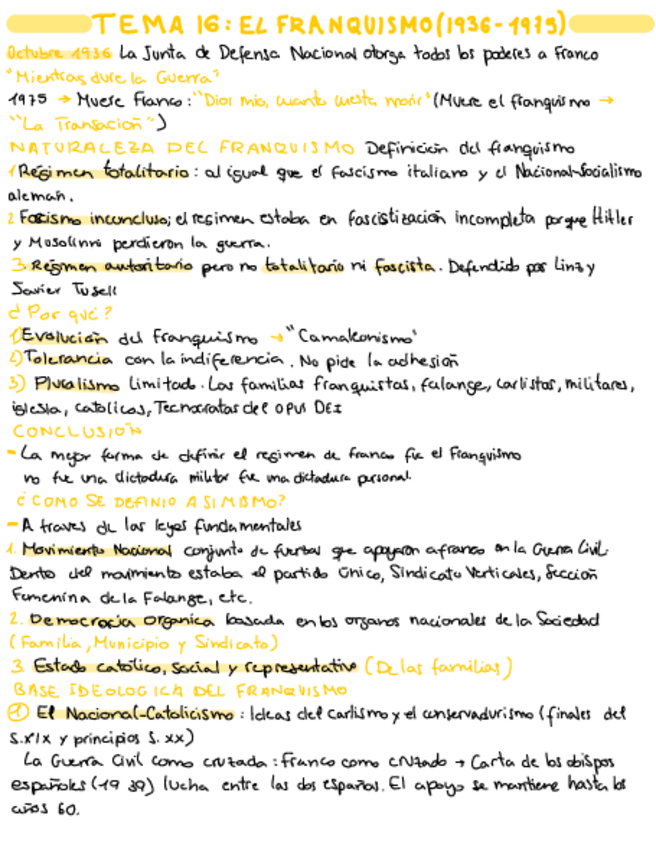 TEMA 16: EL FRANQUISMO (1936-1975)
Octubre 1936 La Junta de Defensa Nacional otorga todos los poderes a Franco
"Mientras dure la Guerra"
1975 → Muere Franco: "Dios mio, cuanto cuesta morir" (Muere el franquismo →
"La Transacion")
NATURALEZA DEL FRANQUISMO Definición del franquismo
1 Régimen totalitario: al igual que el fascismo italiano y el Nacional-Socialismo
aleman.
2 Fascismo inconcluso; el regimen estaba en fascistización incompleta porque Hitler
y Mosolinni perdieron la guerra.
3. Régimen autoritario pero no totalitario ni fascista. Defendido por Linz y
Javier Tusell
¿Por qué?
1) Evolución del franquismo → "Camaleonismo"
2) Tolerancia con la indiferencia. No pide la adhesión
3) Pluralismo limitado. Las familias franquistas, falange, carlistas, militares,
iglesia, católicos, Tecnocratas del OPUS DEI
CONCLUSIÓN
- La mejor forma de definir el regimen de franco fue el Franquismo
no fue una dictadura militar fue una dictadura personal.
¿COMO SE DEFINIO A SI MISMO?
- A traves de las leyes fundamentales
1. Movimiento Nacional conjunto de fuerzas que apoyaron a franco en la Guerra Civil.
Dentro del movimiento estaba el partido único, Sindicato Verticales, Sección
Femenina de la Falange, etc.
2. Democracia Organica basada en los organos nacionales de la Sociedad
(Familia, Municipio y Sindicato)
3. Estado catolico, social y representativo (De las familias)
BASE IDEOLOGICA DEL FRANQUISMO
1 El Nacional-Catolicismo: Ideas del carlismo y el conservadurismo (finales del
S.XIX y principios S. XX)
La Guerra Civil como cruzada: Franco como cruzado → Carta de los obispos
españoles (1939) lucha entre las dos españas. El apoyo se mantiene hasta los
años 60.